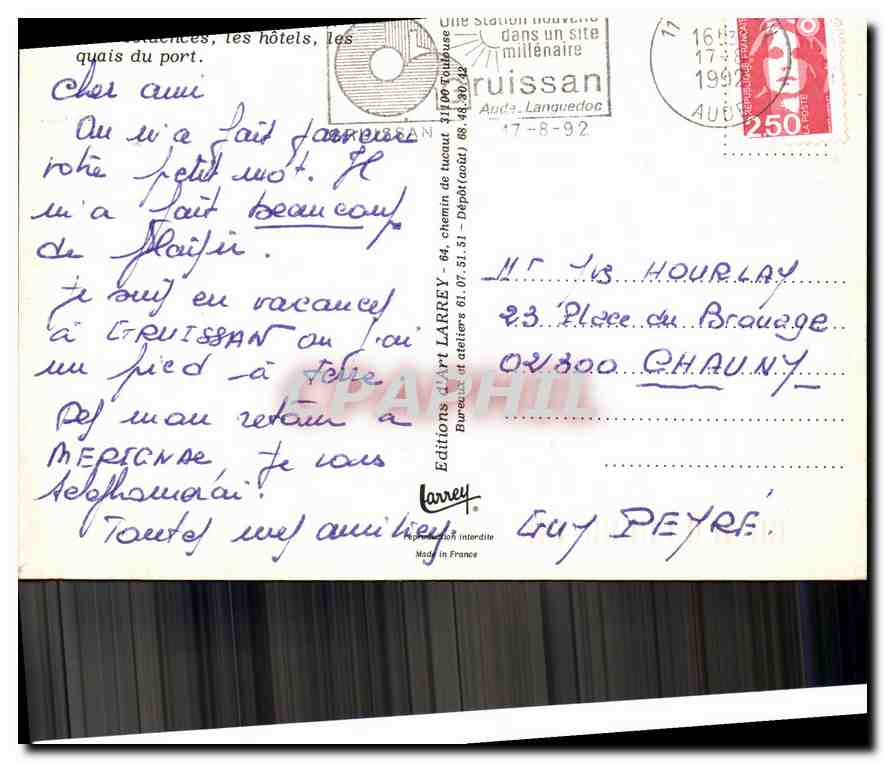 résidences, les hôtels, les
quais du port.
Cher ami
On m'a fait parvenir
votre petit mot. Il
m'a fait beaucoup
de plaisir.
Je suis en vacances
à GRUISSAN ou j'ai
un pied-à terre
Dès mon retour à
MERIGNAC, je vous
telephonerai.
Toutes mes amitiés.
GUY PEYRÉ.
Editions d'Art LARREY - 64, chemin de tucaut 31100 Toulouse
Bureaux et ateliers 61.07.51.51 - Dépôt(août) 68.48.30.42
Larrey
reproduction interdite
Made in France
Une station nouvelle
dans un site
millénaire
Gruissan
Aude-Languedoc
GRUISSAN
17-8-92
11
16H
17-8
1992
AUDE
REPUBLIQUE FRANÇAISE
2,50
LA POSTE
Mr Yves HOURLAY
23 Place du Brouage
02300 CHAUNY
CPAPHIL